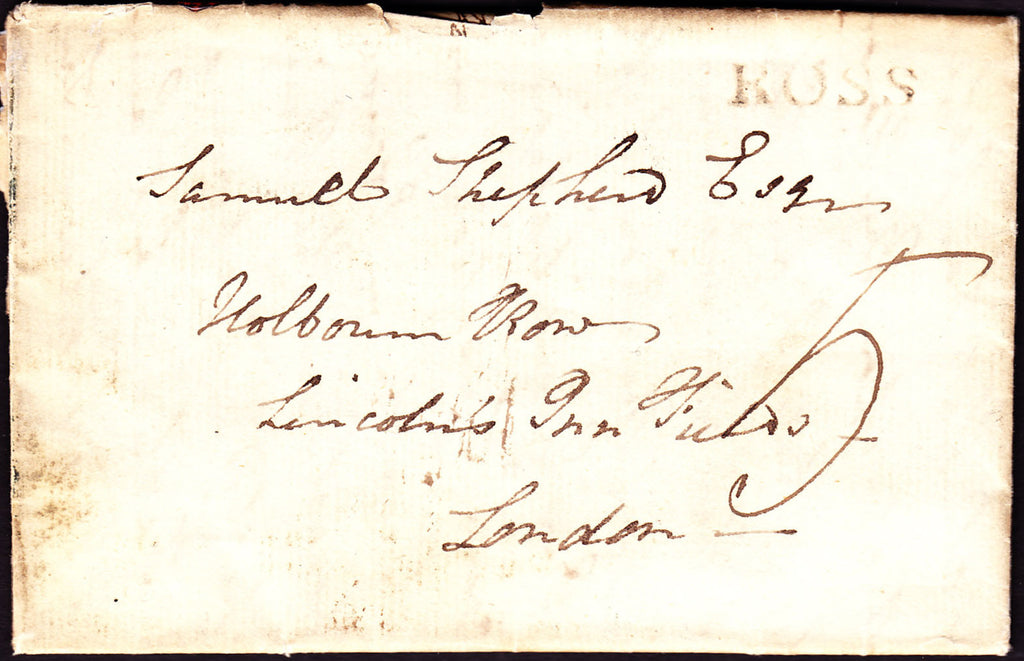 ROSS
Samuel Shepherd Esqr
Holbourn Row
5
Lincoln's Inn Fields
London